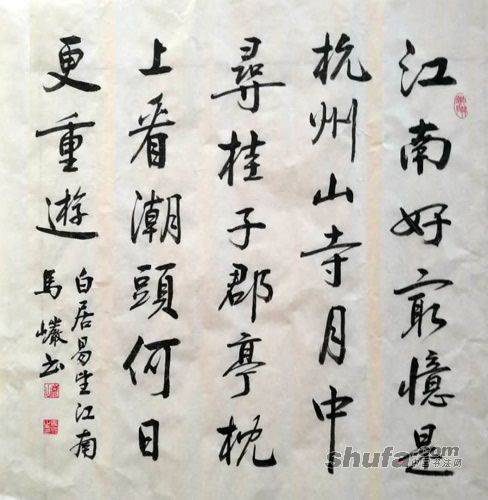 江南好最憶是
杭州山寺月中
尋桂子郡亭枕
上看潮頭何日
更重遊
白居易江南
馬巖书
shufa.com